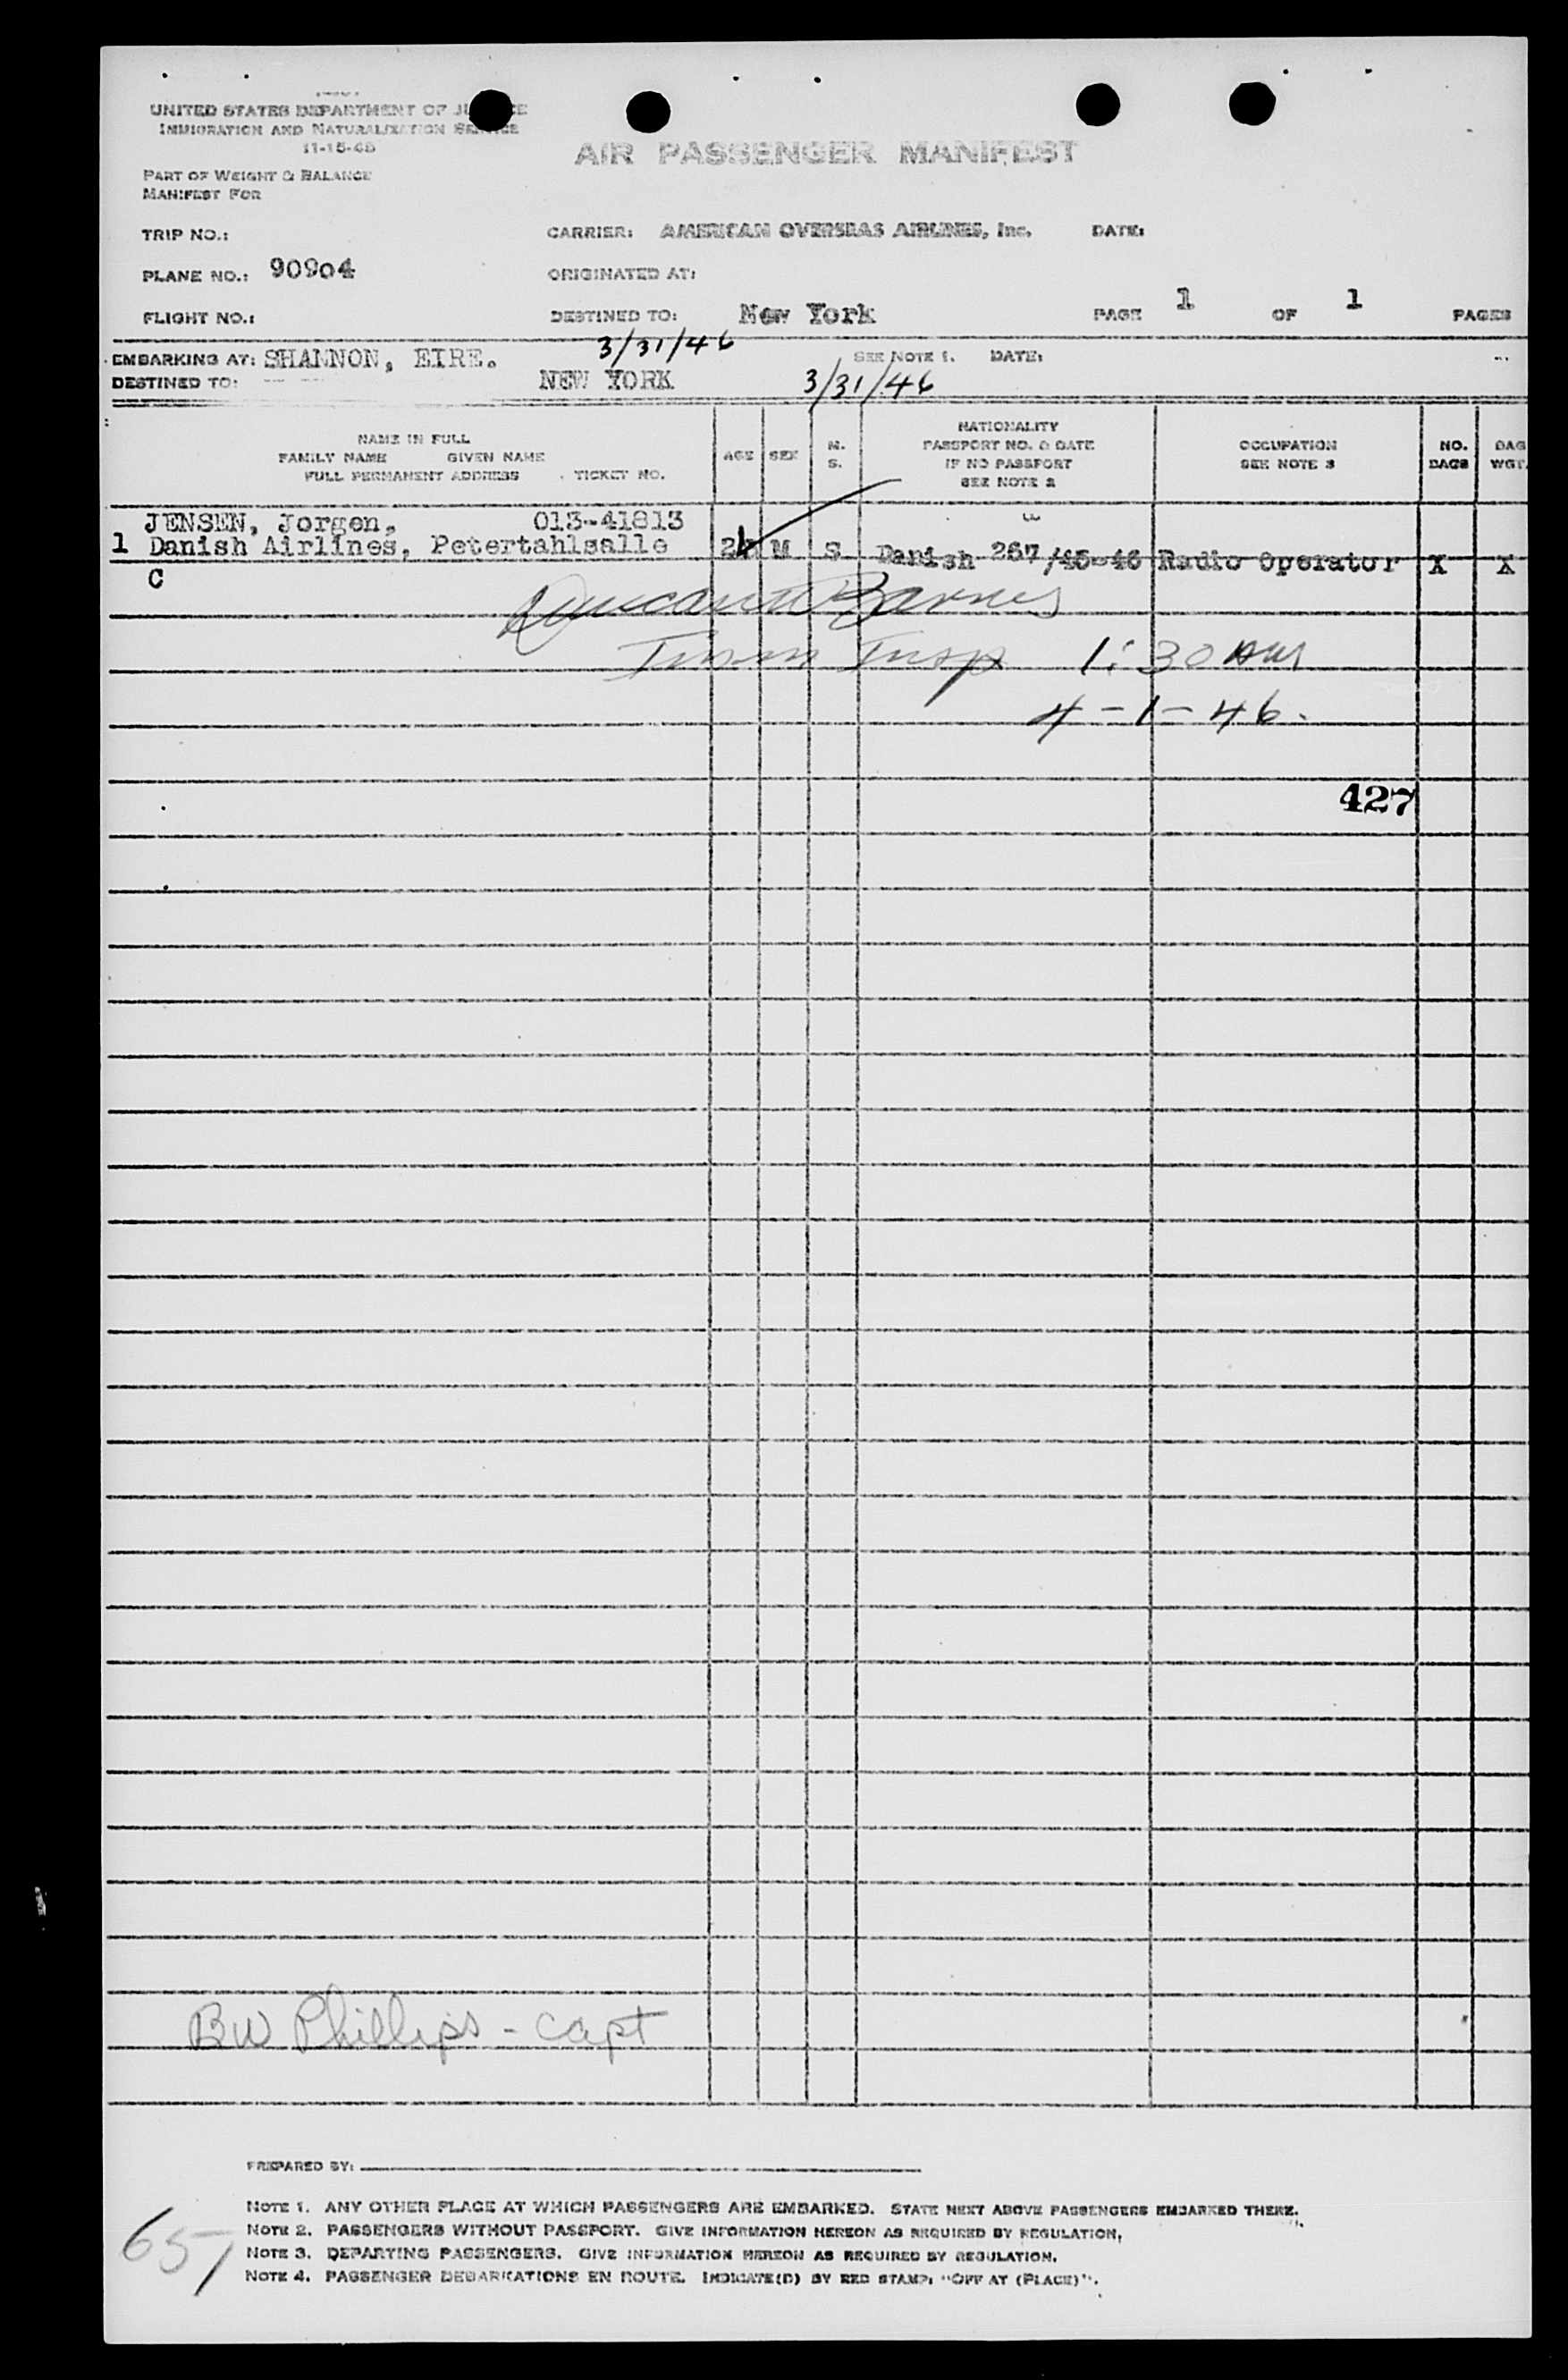 UNITED STATES DEPARTMENT OF JUSTICE
IMMIGRATION AND NATURALIZATION SERVICE
11-15-45
AIR PASSENGER MANIFEST
PART OF WEIGHT & BALANCE
MANIFEST FOR
TRIP NO.: CARRIER: AMERICAN OVERSEAS AIRLINES, Inc. DATE:
PLANE NO.: 90904 ORIGINATED AT:
FLIGHT NO.: DESTINED TO: New York PAGE 1 OF 1 PAGES
EMBARKING AT: SHANNON, EIRE. 3/31/46 SEE NOTE 1. DATE:
DESTINED TO: NEW YORK 3/31/46
NAME IN FULL
FAMILY NAME GIVEN NAME
FULL PERMANENT ADDRESS TICKET NO.
AGE SEX M. S.
NATIONALITY
PASSPORT NO. & DATE
IF NO PASSPORT
SEE NOTE 2
OCCUPATION
SEE NOTE 3
NO. BAGS
BAG WGT.
JENSEN, Jorgen, 013-41813
1 Danish Airlines, Petertahlsalle M S Danish 267/45-46 Radio Operator X X
C
Barnes
Imm Insp 1:30 AM
4-1-46.
427
BW Phillips - Capt
PREPARED BY:
NOTE 1. ANY OTHER PLACE AT WHICH PASSENGERS ARE EMBARKED. STATE NEXT ABOVE PASSENGERS EMBARKED THERE.
NOTE 2. PASSENGERS WITHOUT PASSPORT. GIVE INFORMATION HEREON AS REQUIRED BY REGULATION.
NOTE 3. DEPARTING PASSENGERS. GIVE INFORMATION HEREON AS REQUIRED BY REGULATION.
NOTE 4. PASSENGER DEBARKATIONS EN ROUTE. INDICATE(D) BY RED STAMP: "OFF AT (PLACE)".
651